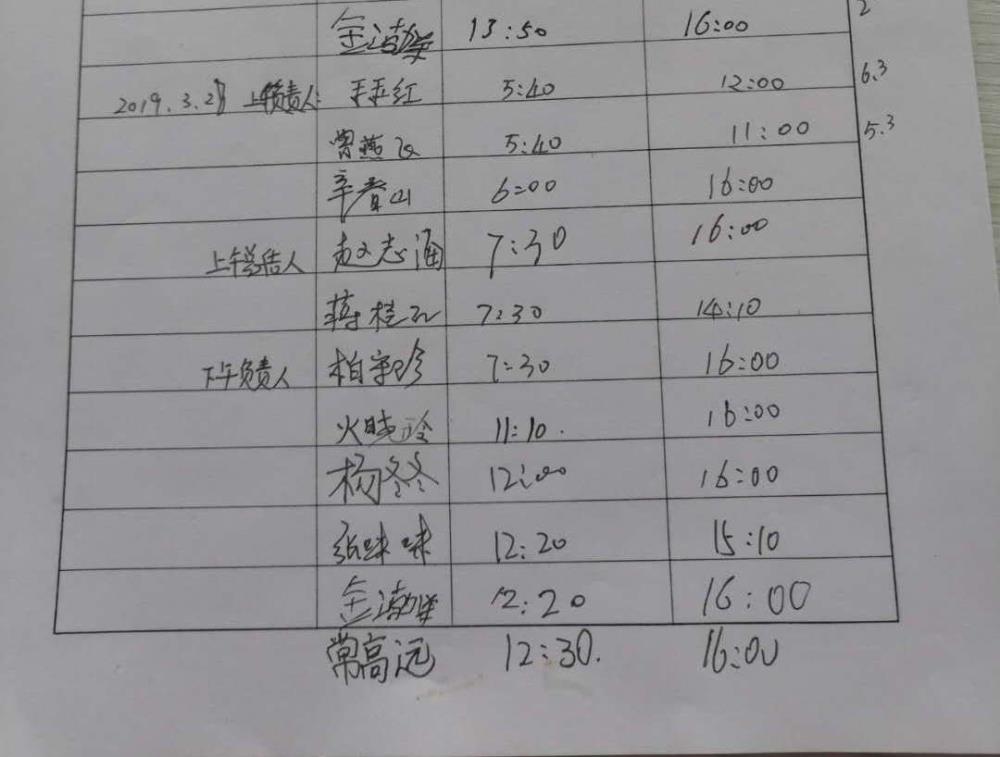 13:50 16:00 2
2019.3.21 上午负责人: 5:40 12:00 6.3
常燕飞 5:40 11:00 5.3
辛青山 6:00 16:00
上午总结人 赵志涵 7:30 16:00
蒋桂 7:30 14:10
下午负责人 柏 7:30 16:00
火晓玲 11:10. 16:00
杨冬冬 12:00 16:00
张味味 12:20 15:10
金渤 12:20 16:00
常高远 12:30. 16:00